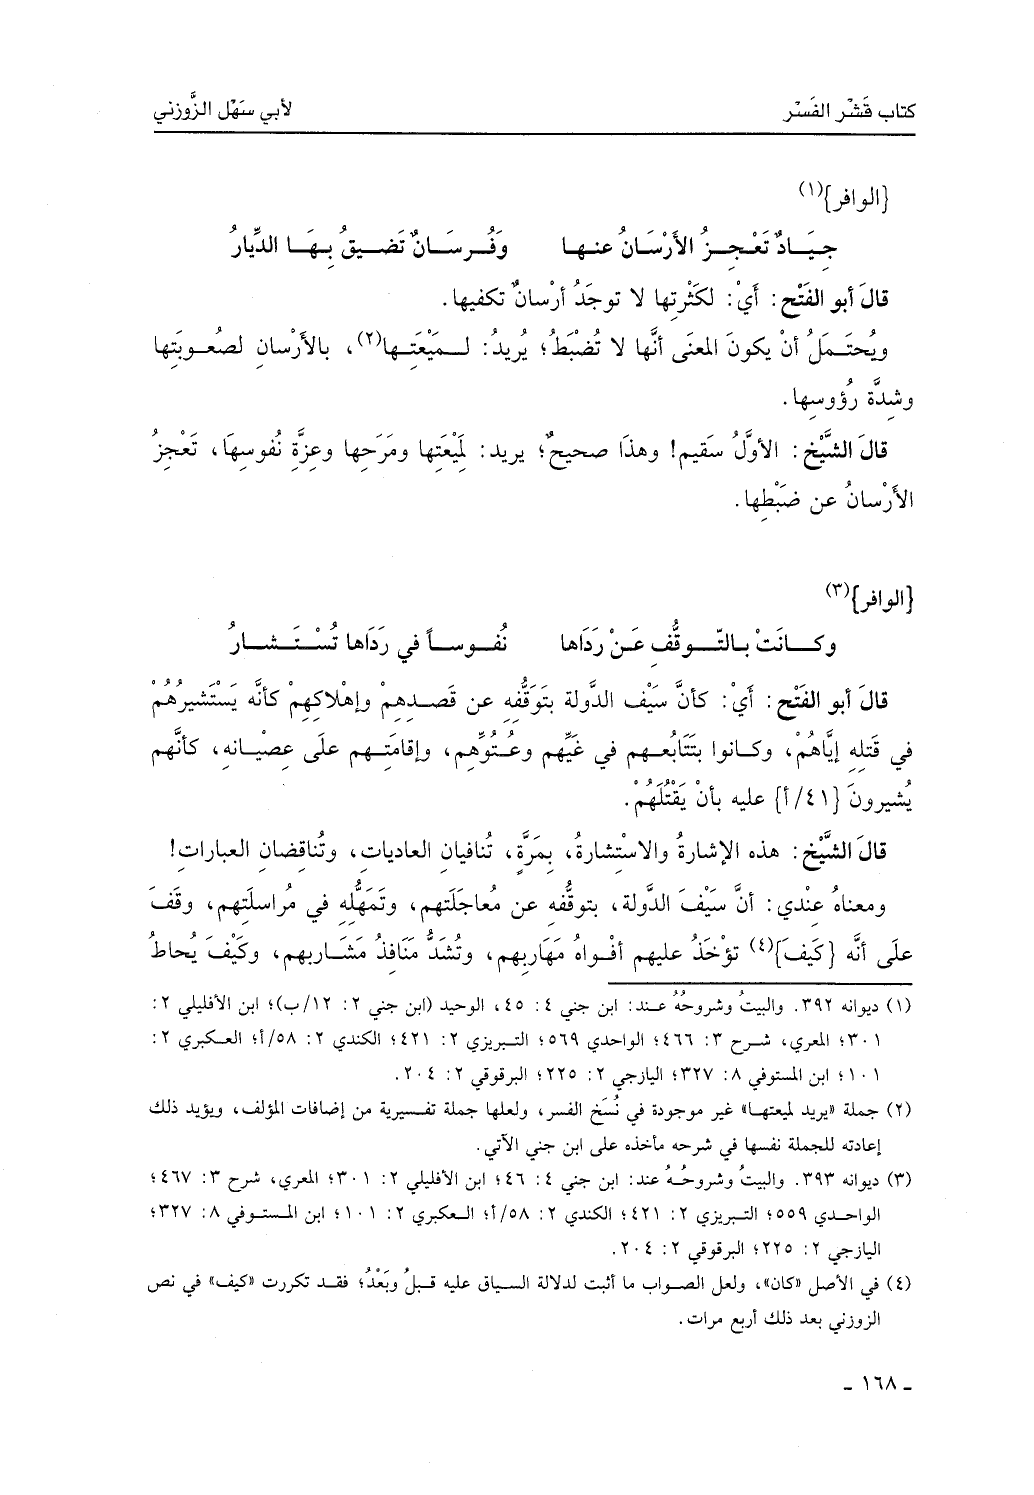 كتاب قَشْر الفَسْر لأبي سَهْل الزَّوزني
{الوافر}(١)
جِيَـادٌ تَعْـجِـزُ الأَرْسَـانُ عنـهـا وَفُـرسَـانٌ تَضـيـقُ بِـهَـا الدِّيارُ
قالَ أبو الفَتْح: أَيْ: لكَثْرتِها لا توجَدُ أرْسانٌ تكفيها.
ويُحتَـمـلُ أنْ يكونَ المعنَى أنَّها لا تُضبَطُ؛ يُريدُ: لـمَيْعَتِـها(٢)، بالأرْسانِ لصُعـوبَتِها
وشِدَّة رُؤوسِها.
قالَ الشَّيْخ: الأوَّلُ سَقيم! وهذَا صحيحٌ؛ يريد: لِمَيْعَتِها ومَرَحِها وعِزَّةِ نُفوسِهَا، تَعْجِزُ
الأَرْسانُ عن ضَبْطِها.
{الوافر}(٣)
وكـانَتْ بـالتّـوقُّفِ عَـنْ رَدَاها نُفُـوسـاً في رَدَاها تُسْـتَـشـارُ
قالَ أبو الفَتْح: أَيْ: كأنَّ سَيْف الدَّولة بتَوَقُّفِه عن قَصْـدِهِمْ وإهْلاكِهِمْ كأنَّه يَسْتَشيرُهُمْ
في قَتلِهِ إيَّاهُمْ، وكـانوا بتَتَابُعـهم في غَيِّهم وعُـتُوِّهِم، وإقامَتـهم علَى عِصْيـانه، كأنَّهم
يُشيرونَ {٤١/أ} عليه بأنْ يَقْتُلَهُمْ.
قالَ الشَّيْخ: هذه الإشارةُ والاستْشارةُ، بِمَرَّةٍ، تُنافيان العاديات، وتُناقِضان العبارات!
ومعناهُ عنْدي: أنَّ سَيْفَ الدَّولة، بتوقُّفه عن مُعاجَلَتهم، وتَمَهُّلِه في مُراسلَتِهم، وقَفَ
علَى أنَّه {كَيفَ}(٤) تؤْخَذُ عليهم أفْـواهُ مَهَاربِهم، وتُسَدُّ مَنَافذُ مَشَاربِهم، وكَيْفَ يُحاطُ
(١) ديوانه ٣٩٢. والبيتُ وشروحُهُ عـند: ابن جني ٤: ٤٥، الوحيد (ابن جني ٢: ١٢/ب)؛ ابن الأفليلي ٢:
٣٠١؛ المعري، شـرح ٣: ٤٦٦؛ الواحدي ٥٦٩؛ التـبريزي ٢: ٤٢١؛ الكندي ٢: ٥٨/أ؛ العـكبري ٢:
١٠١؛ ابن المستوفي ٨: ٣٢٧؛ اليازجي ٢: ٢٢٥؛ البرقوقي ٢: ٢٠٤.
(٢) جملة «يريد لميعتهـا» غير موجودة في نُسَخ الفسر، ولعلها جملة تفـسيرية من إضافات المؤلف، ويؤيد ذلك
إعادته للجملة نفسها في شرحه مأخذه على ابن جني الآتي.
(٣) ديوانه ٣٩٣. والبيتُ وشروحُـهُ عند: ابن جني ٤: ٤٦؛ ابن الأفليلي ٢: ٣٠١؛ المعري، شرح ٣: ٤٦٧؛
الواحـدي ٥٥٩؛ التـبريزي ٢: ٤٢١؛ الكندي ٢: ٥٨/أ؛ العـكبري ٢: ١٠١؛ ابن المسـتـوفي ٨: ٣٢٧؛
اليازجي ٢: ٢٢٥؛ البرقوقي ٢: ٢٠٤.
(٤) في الأصل «كان»، ولعل الصـواب ما أثبت لدلالة السـياق عليه قبـلُ وبَعْدُ؛ فقـد تكررت «كيف» في نص
الزوزني بعد ذلك أربع مرات.
- ١٦٨ -